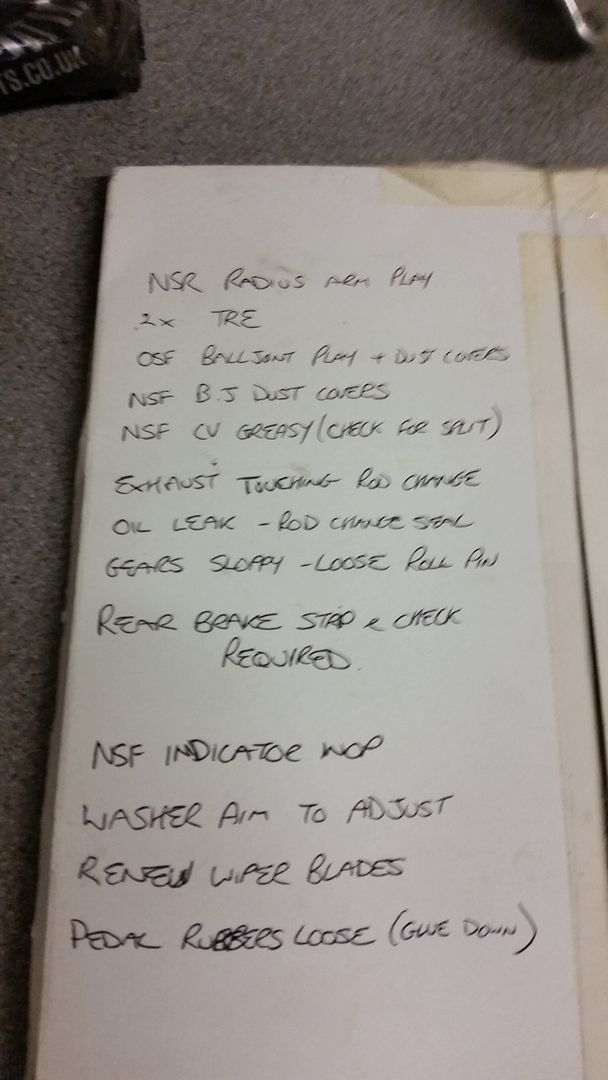 TS.CO.UK
NSR RADIUS ARM PLAY
2x TRE
OSF BALL JOINT PLAY + DUST COVERS
NSF B.J DUST COVERS
NSF CV GREASY (CHECK FOR SPLIT)
EXHAUST TOUCHING ROD CHANGE
OIL LEAK - ROD CHANGE SEAL
GEARS SLOPPY - LOOSE ROLL PIN
REAR BRAKE STRIP & CHECK
REQUIRED.
NSF INDICATOR INOP
WASHER AIM TO ADJUST
RENEW WIPER BLADES
PEDAL RUBBERS LOOSE (GLUE DOWN)